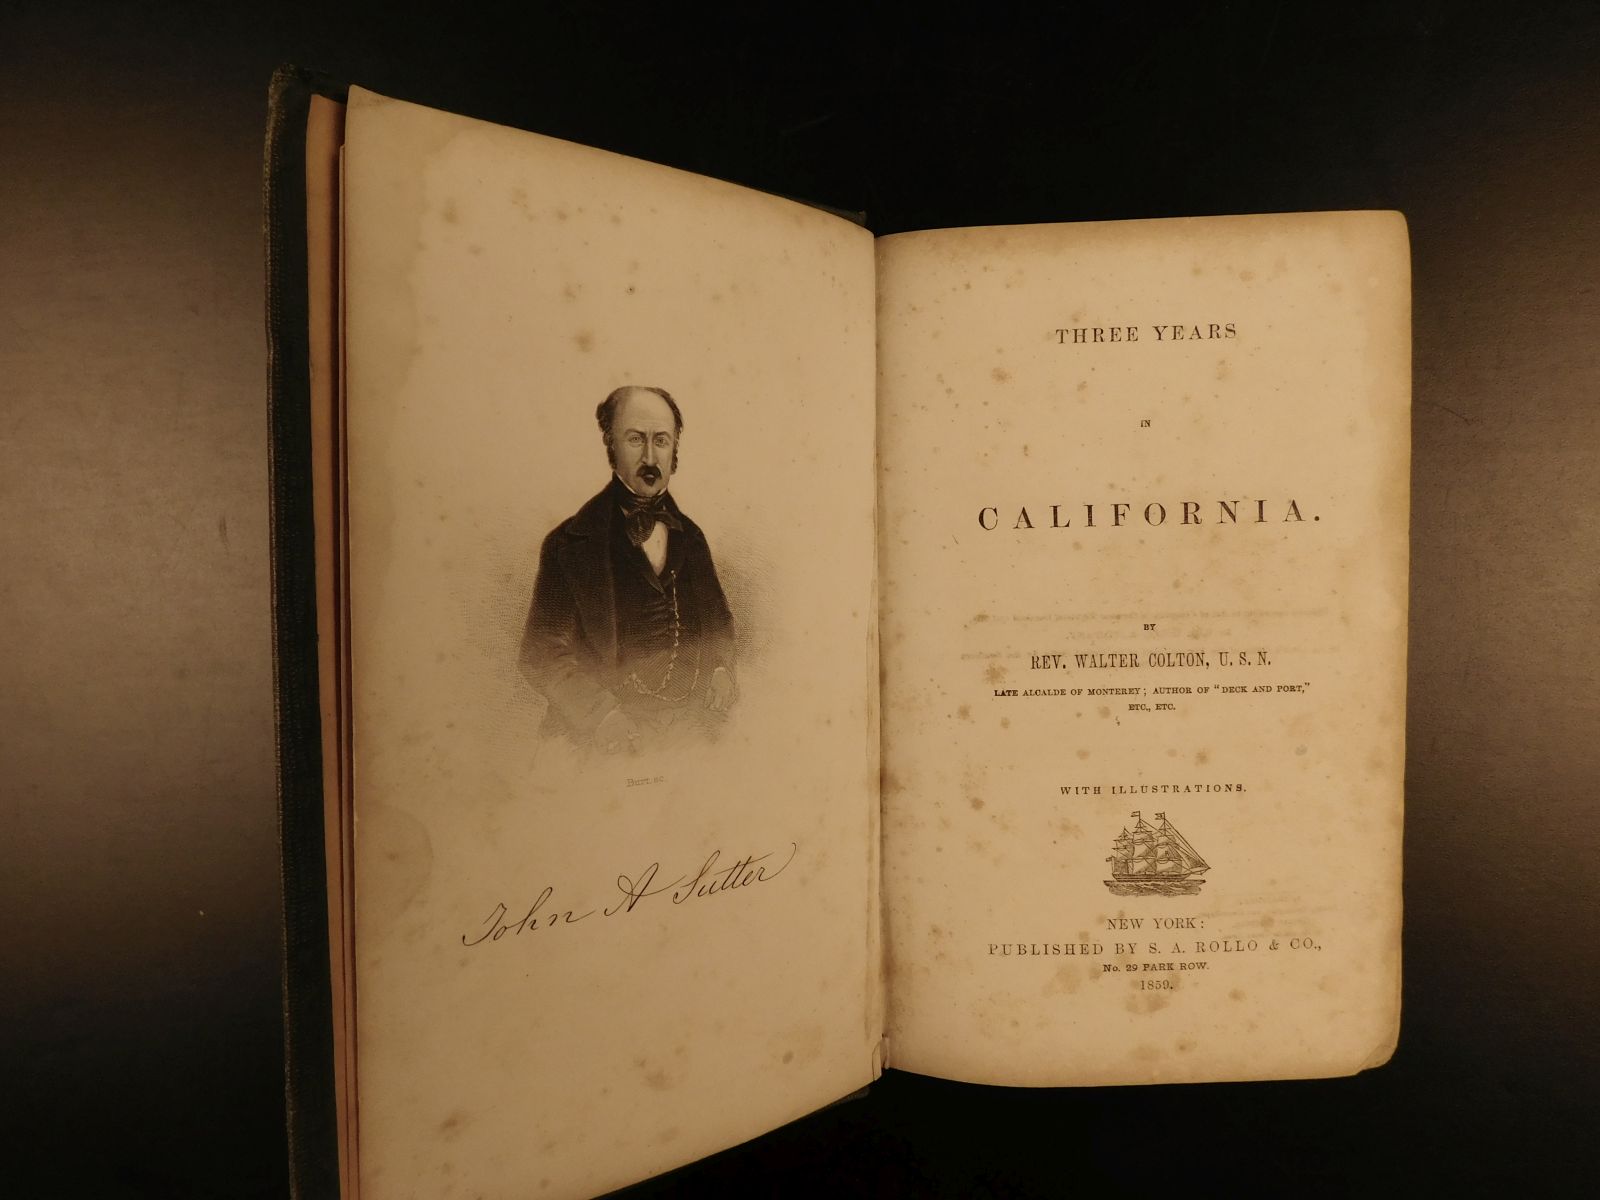 Burt. sc.
John A Sutter
THREE YEARS
IN
CALIFORNIA.
BY
REV. WALTER COLTON, U. S. N.
LATE ALCALDE OF MONTEREY; AUTHOR OF "DECK AND PORT,"
ETC., ETC.
WITH ILLUSTRATIONS.
NEW YORK:
PUBLISHED BY S. A. ROLLO & CO.,
No. 29 PARK ROW.
1859.